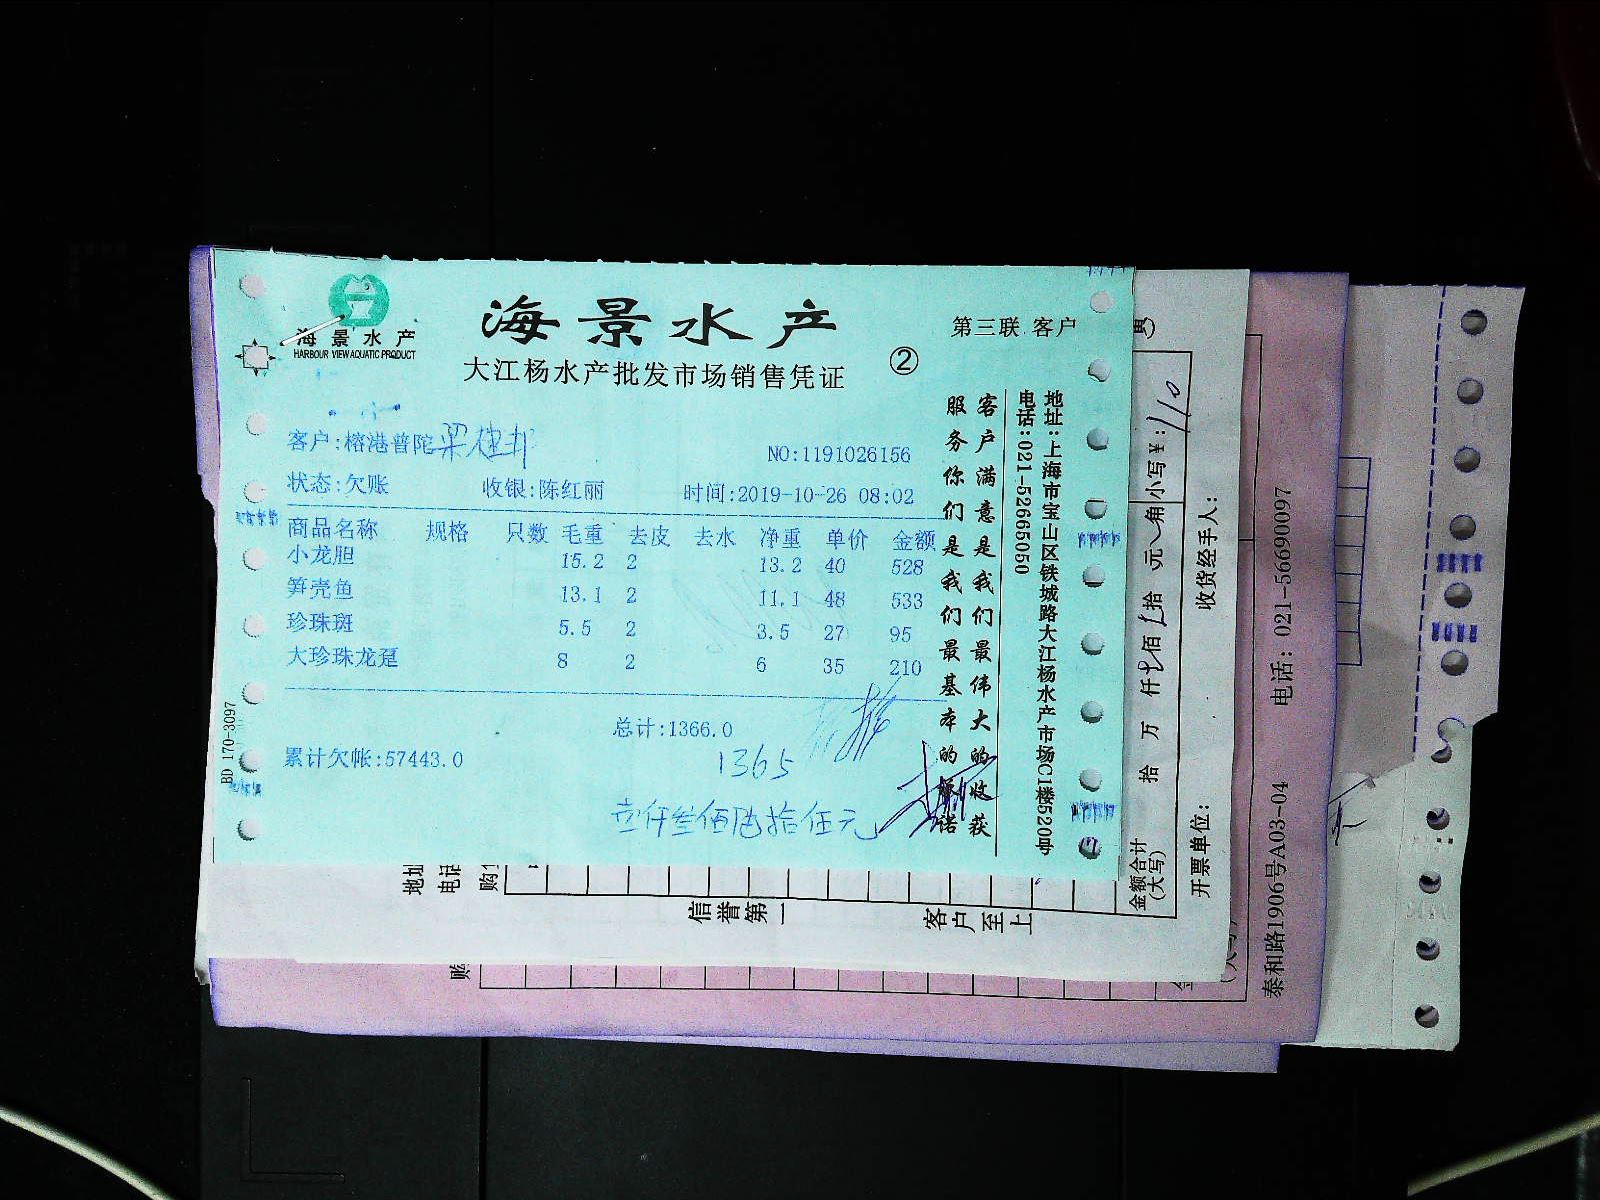 海景水产
HARBOUR VIEW AQUATIC PRODUCT
海景水产
第三联 客户
大江杨水产批发市场销售凭证
②
客户:榕港普陀
NO:1191026156
状态:欠账 收银:陈红丽 时间:2019-10-26 08:02
商品名称 规格 只数 毛重 去皮 去水 净重 单价 金额
小龙胆 15.2 2 13.2 40 528
笋壳鱼 13.1 2 11.1 48 533
珍珠斑 5.5 2 3.5 27 95
大珍珠龙趸 8 2 6 35 210
总计:1366.0
累计欠帐:57443.0
1365
仟叁佰陆拾伍元
BD 170-3097
客户满意是我们最伟大的收获
服务你们是我们最基本的承诺
地址:上海市宝山区铁城路大江杨水产市场C1楼520号
电话:021-52665050
地址
电话
购
信誉第一 客户至上
金额合计
(大写)
拾 万 仟 佰 拾 元 角 小写¥:
开票单位: 收货经手人:
购
泰和路1906号A03-04 电话: 021-56690097